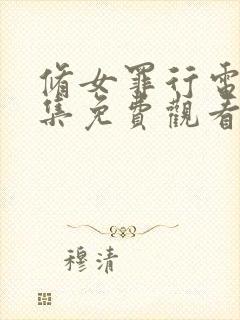 脩女罪行電
集免費觀看
穆清